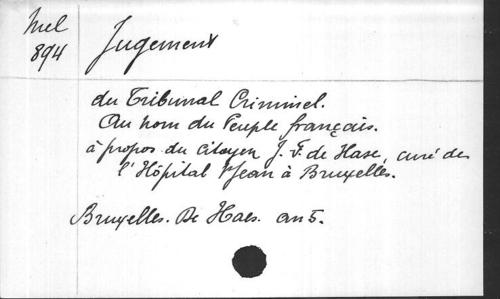 Mel
894
Jugement
du Tribunal Criminel.
Au nom du Peuple français.
à propos du Citoyen J. F. de Hase, curé de
l'Hôpital St Jean à Bruxelles.
Bruxelles. De Haes. an 5.